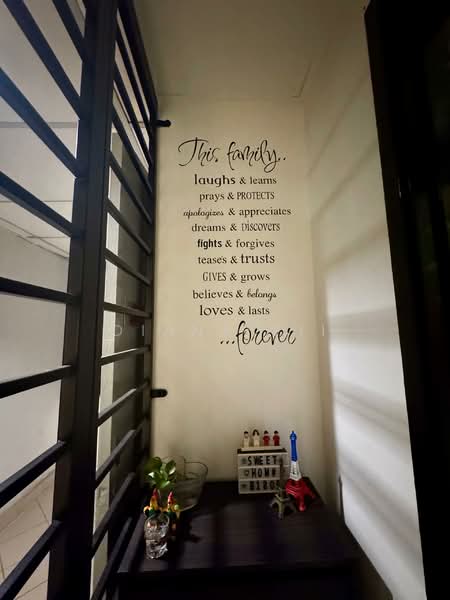 This family..
laughs & learns
prays & PROTECTS
apologizes & appreciates
dreams & DISCOVERS
fights & forgives
tease's & trusts
GIVES & grows
believes & belongs
loves & lasts
...forever
SWEET
HOME